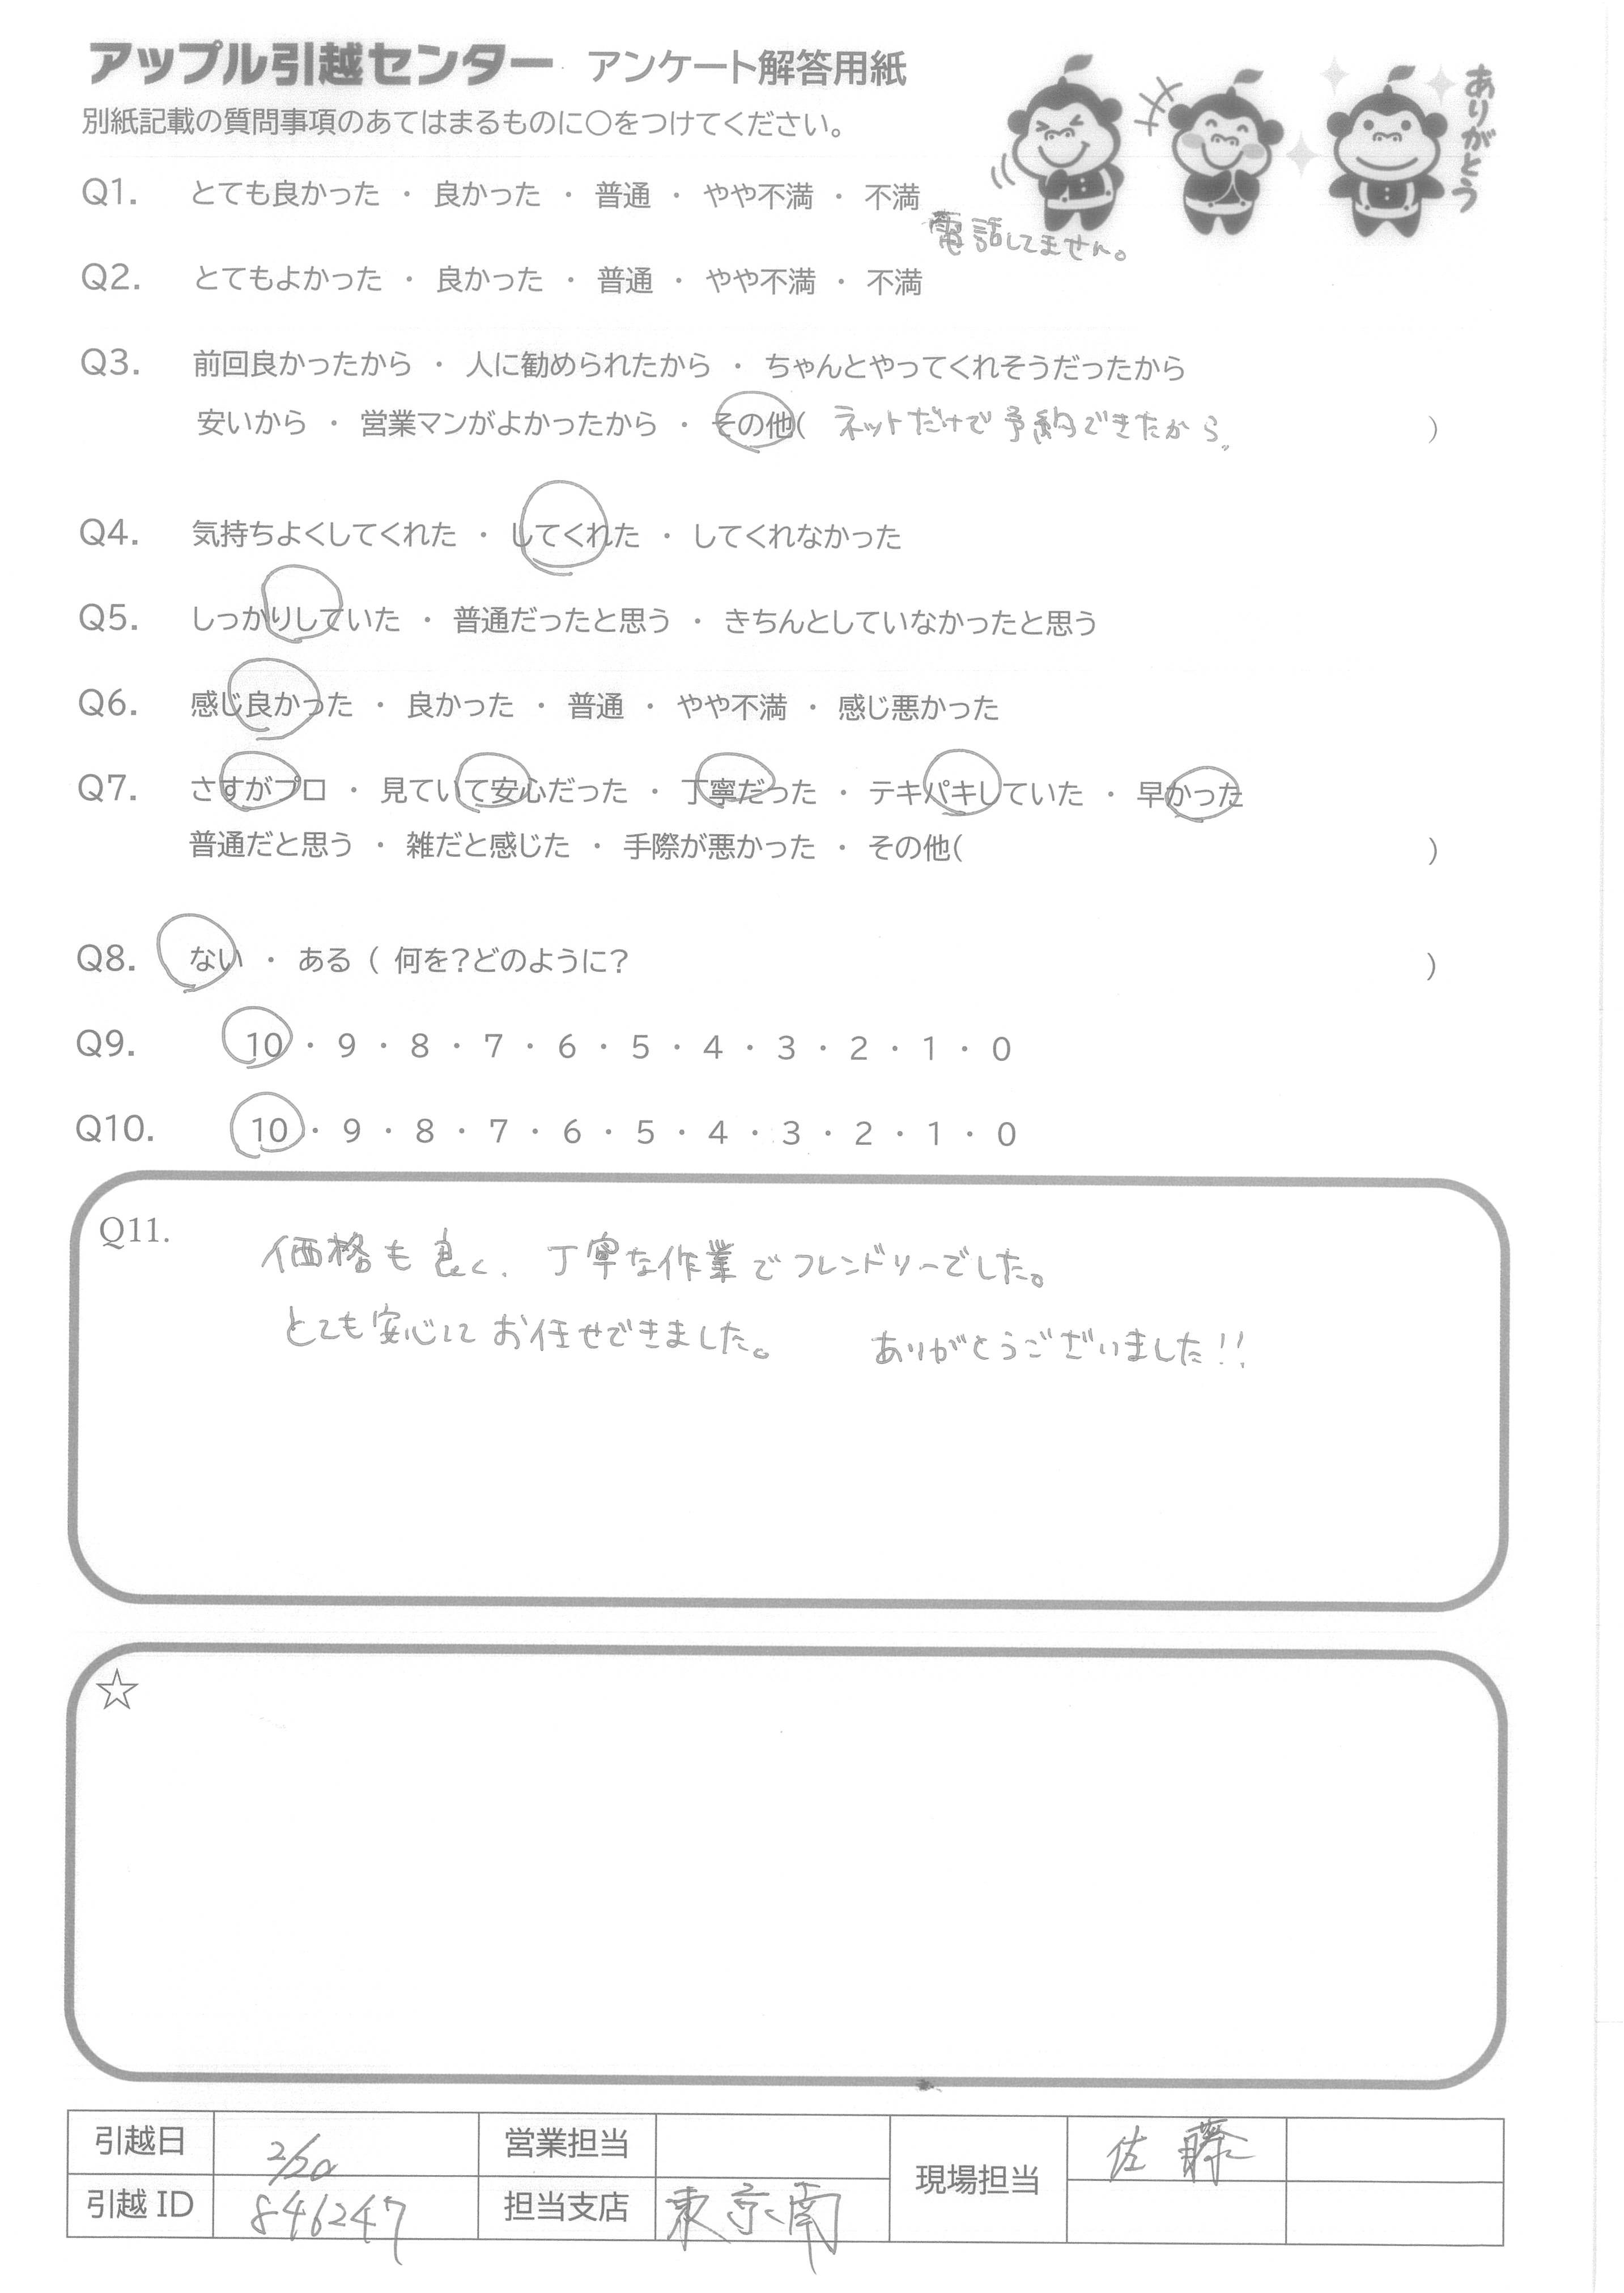 アップル引越センター アンケート解答用紙
別紙記載の質問事項のあてはまるものに○をつけてください。
ありがとう
Q1. とても良かった ・ 良かった ・ 普通 ・ やや不満 ・ 不満
電話してません。
Q2. とてもよかった ・ 良かった ・ 普通 ・ やや不満 ・ 不満
Q3. 前回良かったから ・ 人に勧められたから ・ ちゃんとやってくれそうだったから
安いから ・ 営業マンがよかったから ・ その他( ネットだけで予約できたから。 )
Q4. 気持ちよくしてくれた ・ してくれた ・ してくれなかった
Q5. しっかりしていた ・ 普通だったと思う ・ きちんとしていなかったと思う
Q6. 感じ良かった ・ 良かった ・ 普通 ・ やや不満 ・ 感じ悪かった
Q7. さすがプロ ・ 見ていて安心だった ・ 丁寧だった ・ テキパキしていた ・ 早かった
普通だと思う ・ 雑だと感じた ・ 手際が悪かった ・ その他( )
Q8. ない ・ ある ( 何を?どのように? )
Q9. 10 ・ 9 ・ 8 ・ 7 ・ 6 ・ 5 ・ 4 ・ 3 ・ 2 ・ 1 ・ 0
Q10. 10 ・ 9 ・ 8 ・ 7 ・ 6 ・ 5 ・ 4 ・ 3 ・ 2 ・ 1 ・ 0
Q11. 価格も良く、丁寧な作業でフレンドリーでした。
とても安心してお任せできました。 ありがとうございました!!
☆
引越日 2/20 営業担当 現場担当 佐藤
引越ID 846247 担当支店 東京南